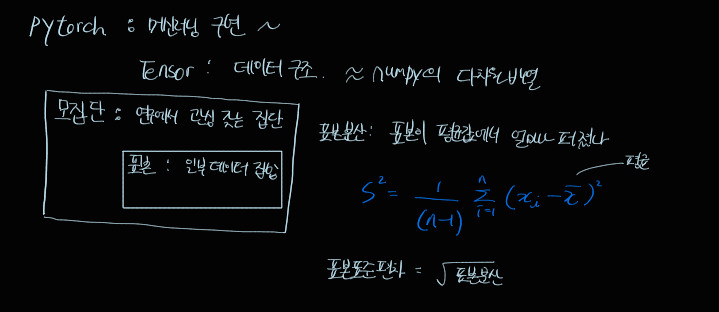 Pytorch : 머신러닝 구현 ~
Tensor : 데이터 구조. ≈ numpy의 다차원 배열
모집단 : 연구에서 관심 갖는 집단
표본 : 일부 데이터 집합
표본분산 : 표본이 평균값에서 얼마나 퍼졌나
평균
S² = 1/(n-1) Σ_{i=1}^{n} (x_i - x̄)²
표본표준편차 = √표본분산